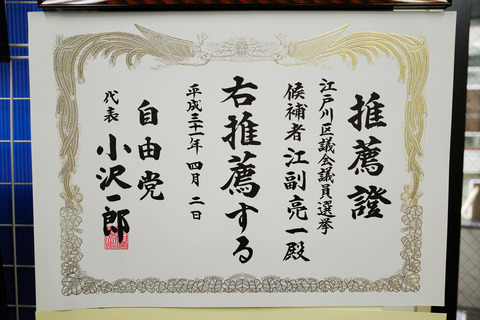 推薦證
江戸川区議会議員選挙
候補者 江副亮一殿
右推薦する
平成三十一年 四月 二日
自由党
代表 小沢一郎